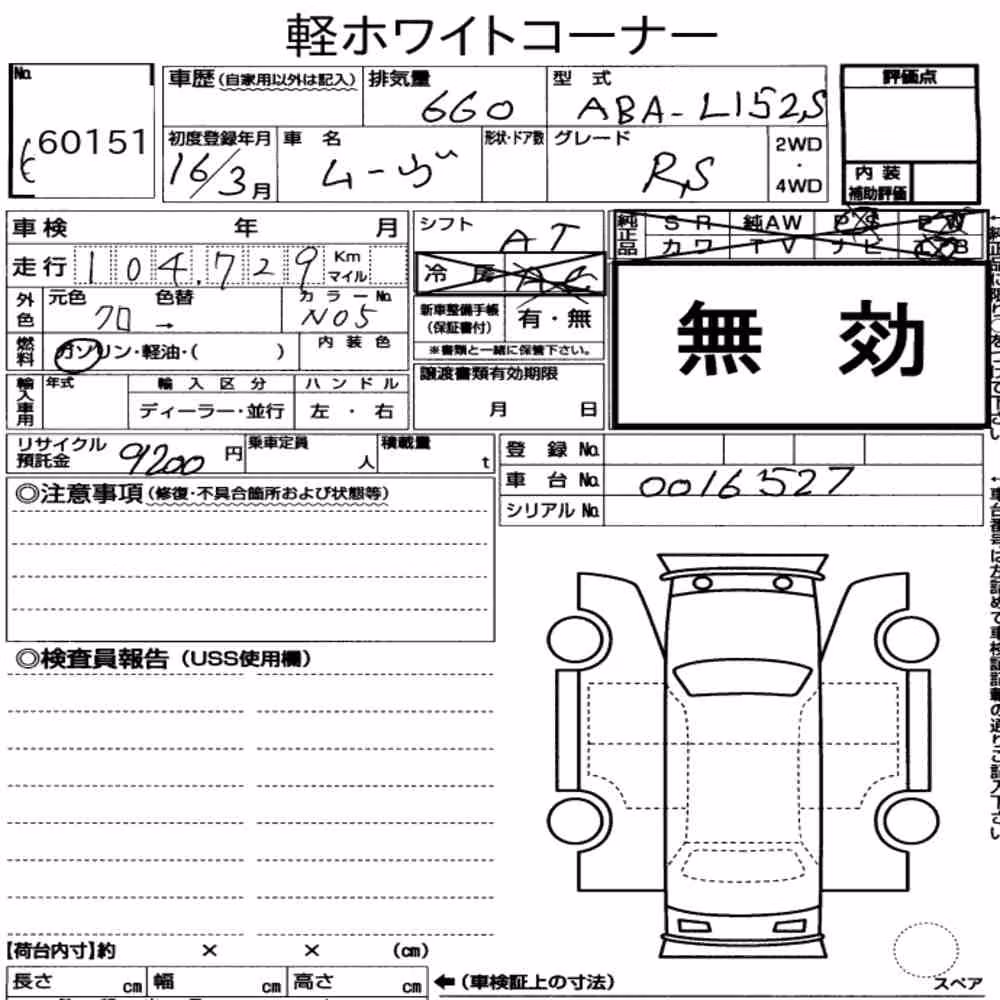 軽ホワイトコーナー
No.
60151
車歴(自家用以外は記入)
排気量
660
型式
ABA-L152S
評価点
初度登録年月
16/3月
車名
ムーヴ
形状・ドア数
グレード
RS
2WD
・
4WD
内装
補助評価
車検 年 月
シフト
AT
純正品
SR 純AW PS PW
カワ TV ナビ
走行 104,729 Km
マイル
冷房 AC
外色
元色
クロ→
色替
カラーNo.
N05
新車整備手帳
(保証書付)
有・無
※書類と一緒に保管下さい。
無効
燃料
ガソリン・軽油・( )
内装色
輸入車用
年式
輸入区分
ディーラー・並行
ハンドル
左・右
譲渡書類有効期限
月 日
リサイクル
預託金
9200円
乗車定員
人
積載量
t
登録No.
車台No.
0016527
シリアルNo.
◎注意事項(修復・不具合箇所および状態等)
◎検査員報告(USS使用欄)
【荷台内寸】約 × × (cm)
長さ cm 幅 cm 高さ cm
←(車検証上の寸法)
スペア
↑車台番号は左詰めで車検証記載の通りご記入下さい